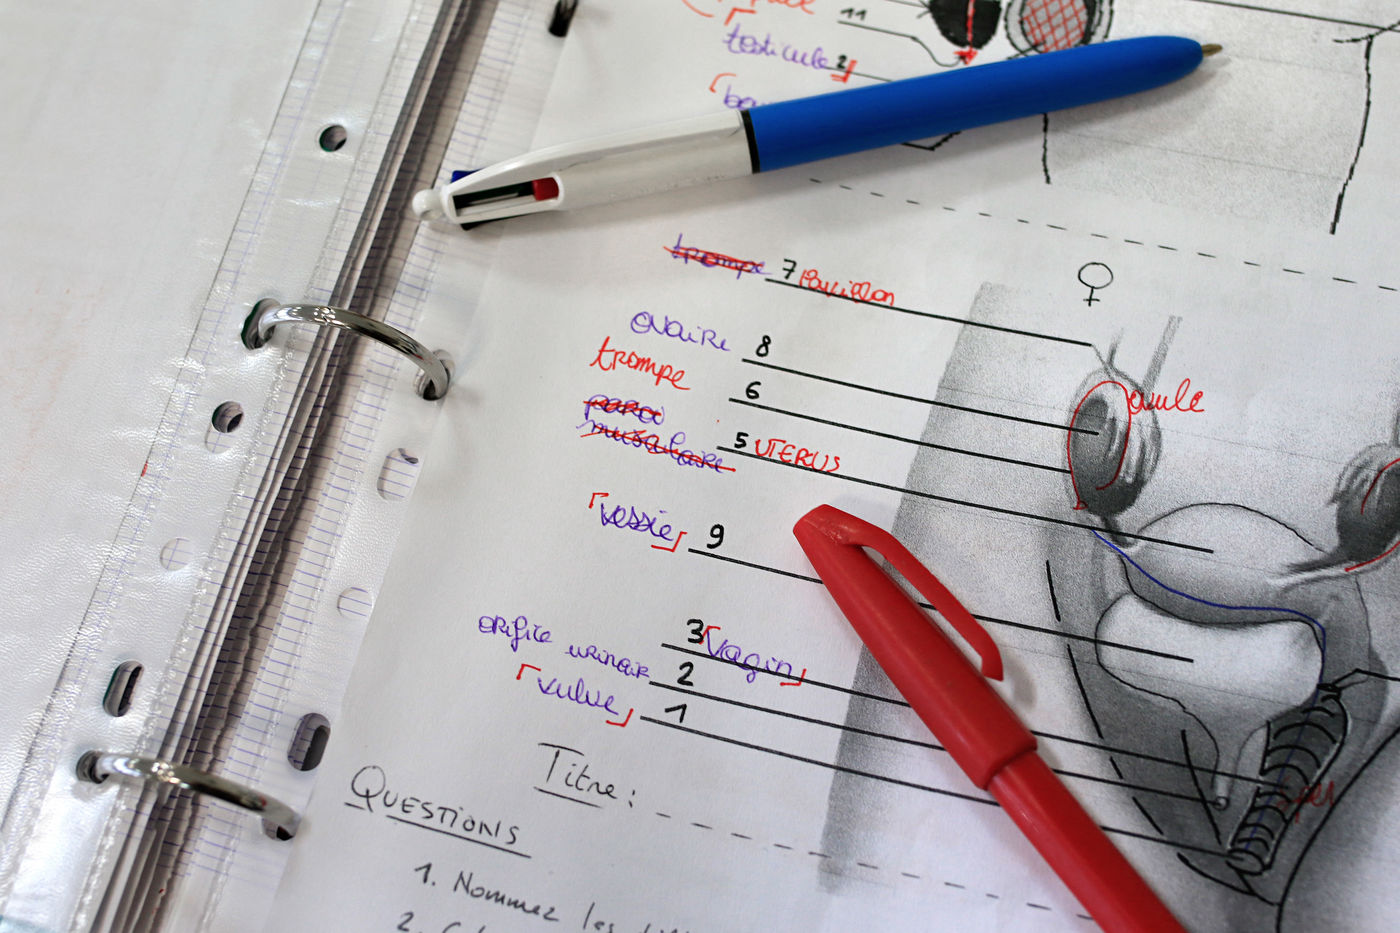 11
testicule 2
trompe 7 Pavillon
ovaire 8
trompe 6
ovule
paroi
musculaire 5 UTERUS
vessie 9
3 Vagin
orifice urinair 2
vulve 1
Titre:
QUESTIONS
1. Nommez les
2.